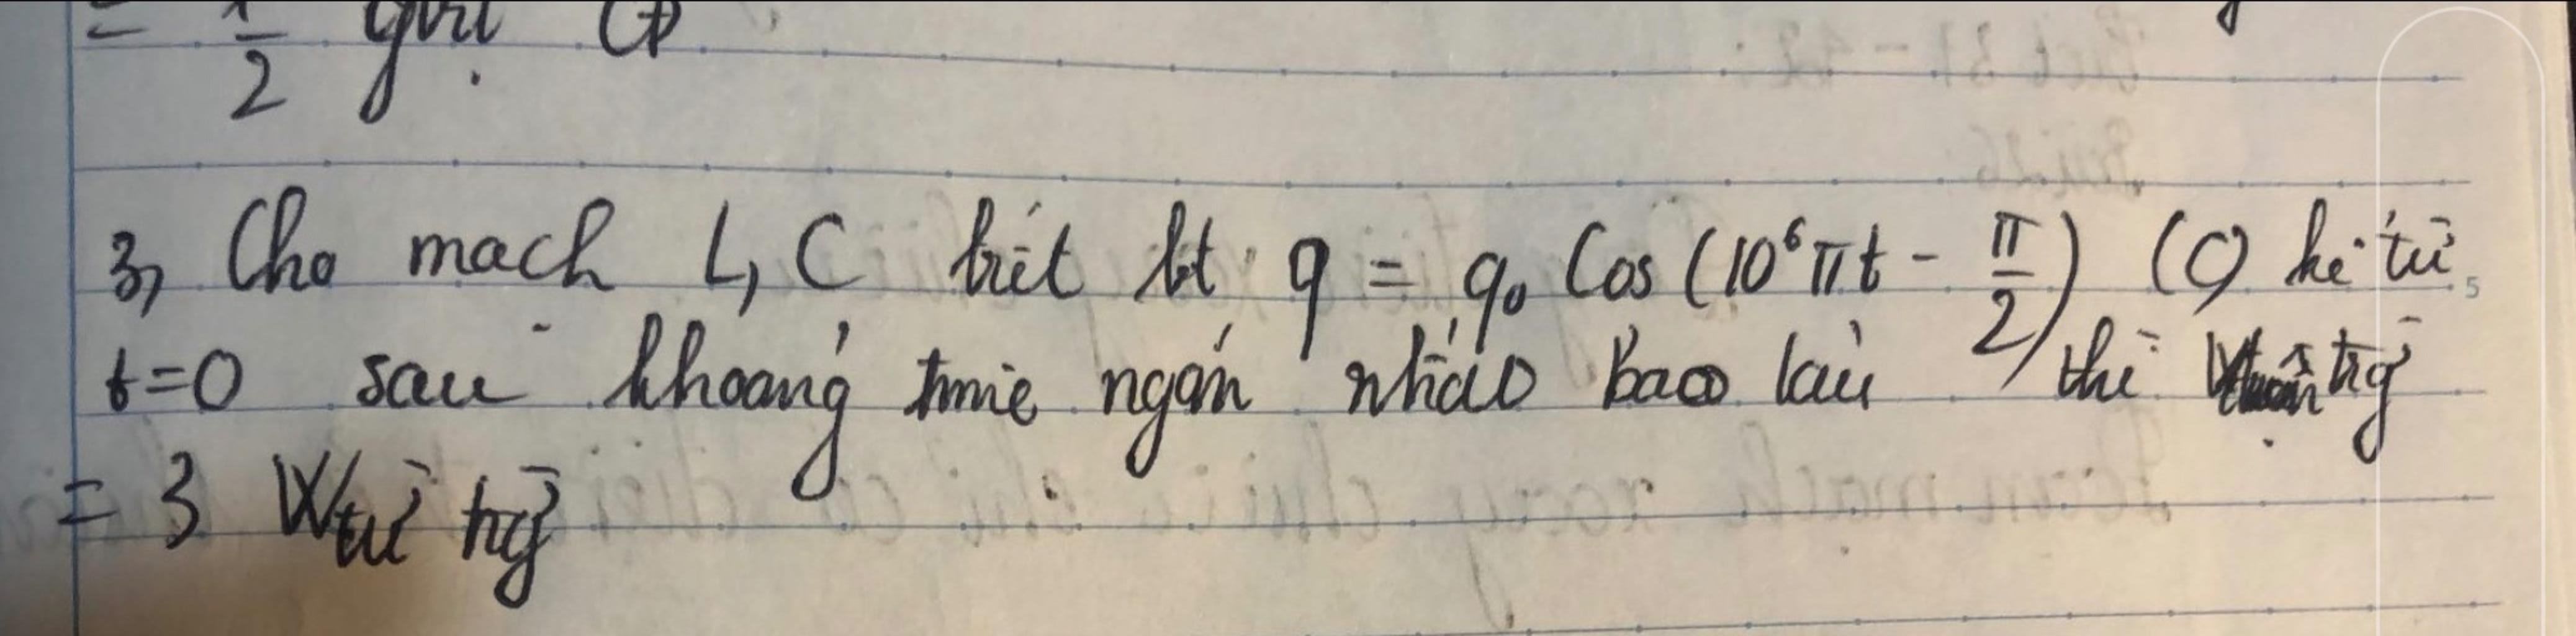 = 1/2 giựt (+)
3, Cho mạch L, C biết bt q = q₀ Cos (10⁶πt - π/2) (C) kể từ
t=0 sau khoảng time ngắn nhất bao lâu thì trg
= 3 Wtừ trg